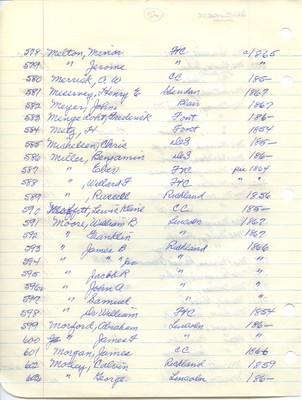 578 Melton, Minor FTC c1865
579 " Jerome " "
580 Merrick, A. W. CC 185-
581 Messervey, Henry E Sheridan 1867
582 Meyer, John Blair 1867
583 Frederick Font 186-
584 Metz, H. Font 1854
585 Michelsen, Chris D&S 185-
586 Miller, Benjamin D&S 186-
587 " Eber FTC pre 1864
588 " , Willard F FTC " "
589 " Russell Richland 1856
590 Lewis Kline CC 185-
591 Moore, William B Lucuen 1862
592 " Franklin " 1867
593 " James B Richland 1866
594 " " " Jr " "
595 " Jacob R " "
596 " John A " "
597 " Samuel " "
598 " William FTC 1854
599 Morford, Abraham Lincoln 186-
600 " James F " "
601 Morgan, James CC 1866
602 Motley, Calvin Richland 1859
603 " George Lincoln 186-